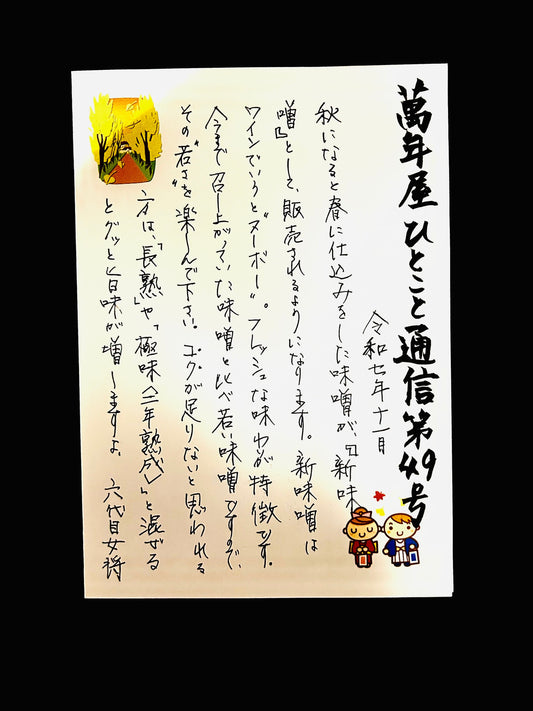 萬年屋ひとこと通信第49号
令和七年十一月
秋になると春に仕込みをした味噌が、『新味
噌』として、販売されるようになります。新味噌は
ワインでいうと〝ヌーボー〟。フレッシュな味わが特徴です。
今まで召し上がっていた味噌と比べ若い味噌ですので、
その〝若さ〟を楽しんで下さい。コクが足りないと思われる
方は、「長熟」や「極味〈二年熟成〉」と混ぜる
とグッと旨味が増しますよ 六代目女将